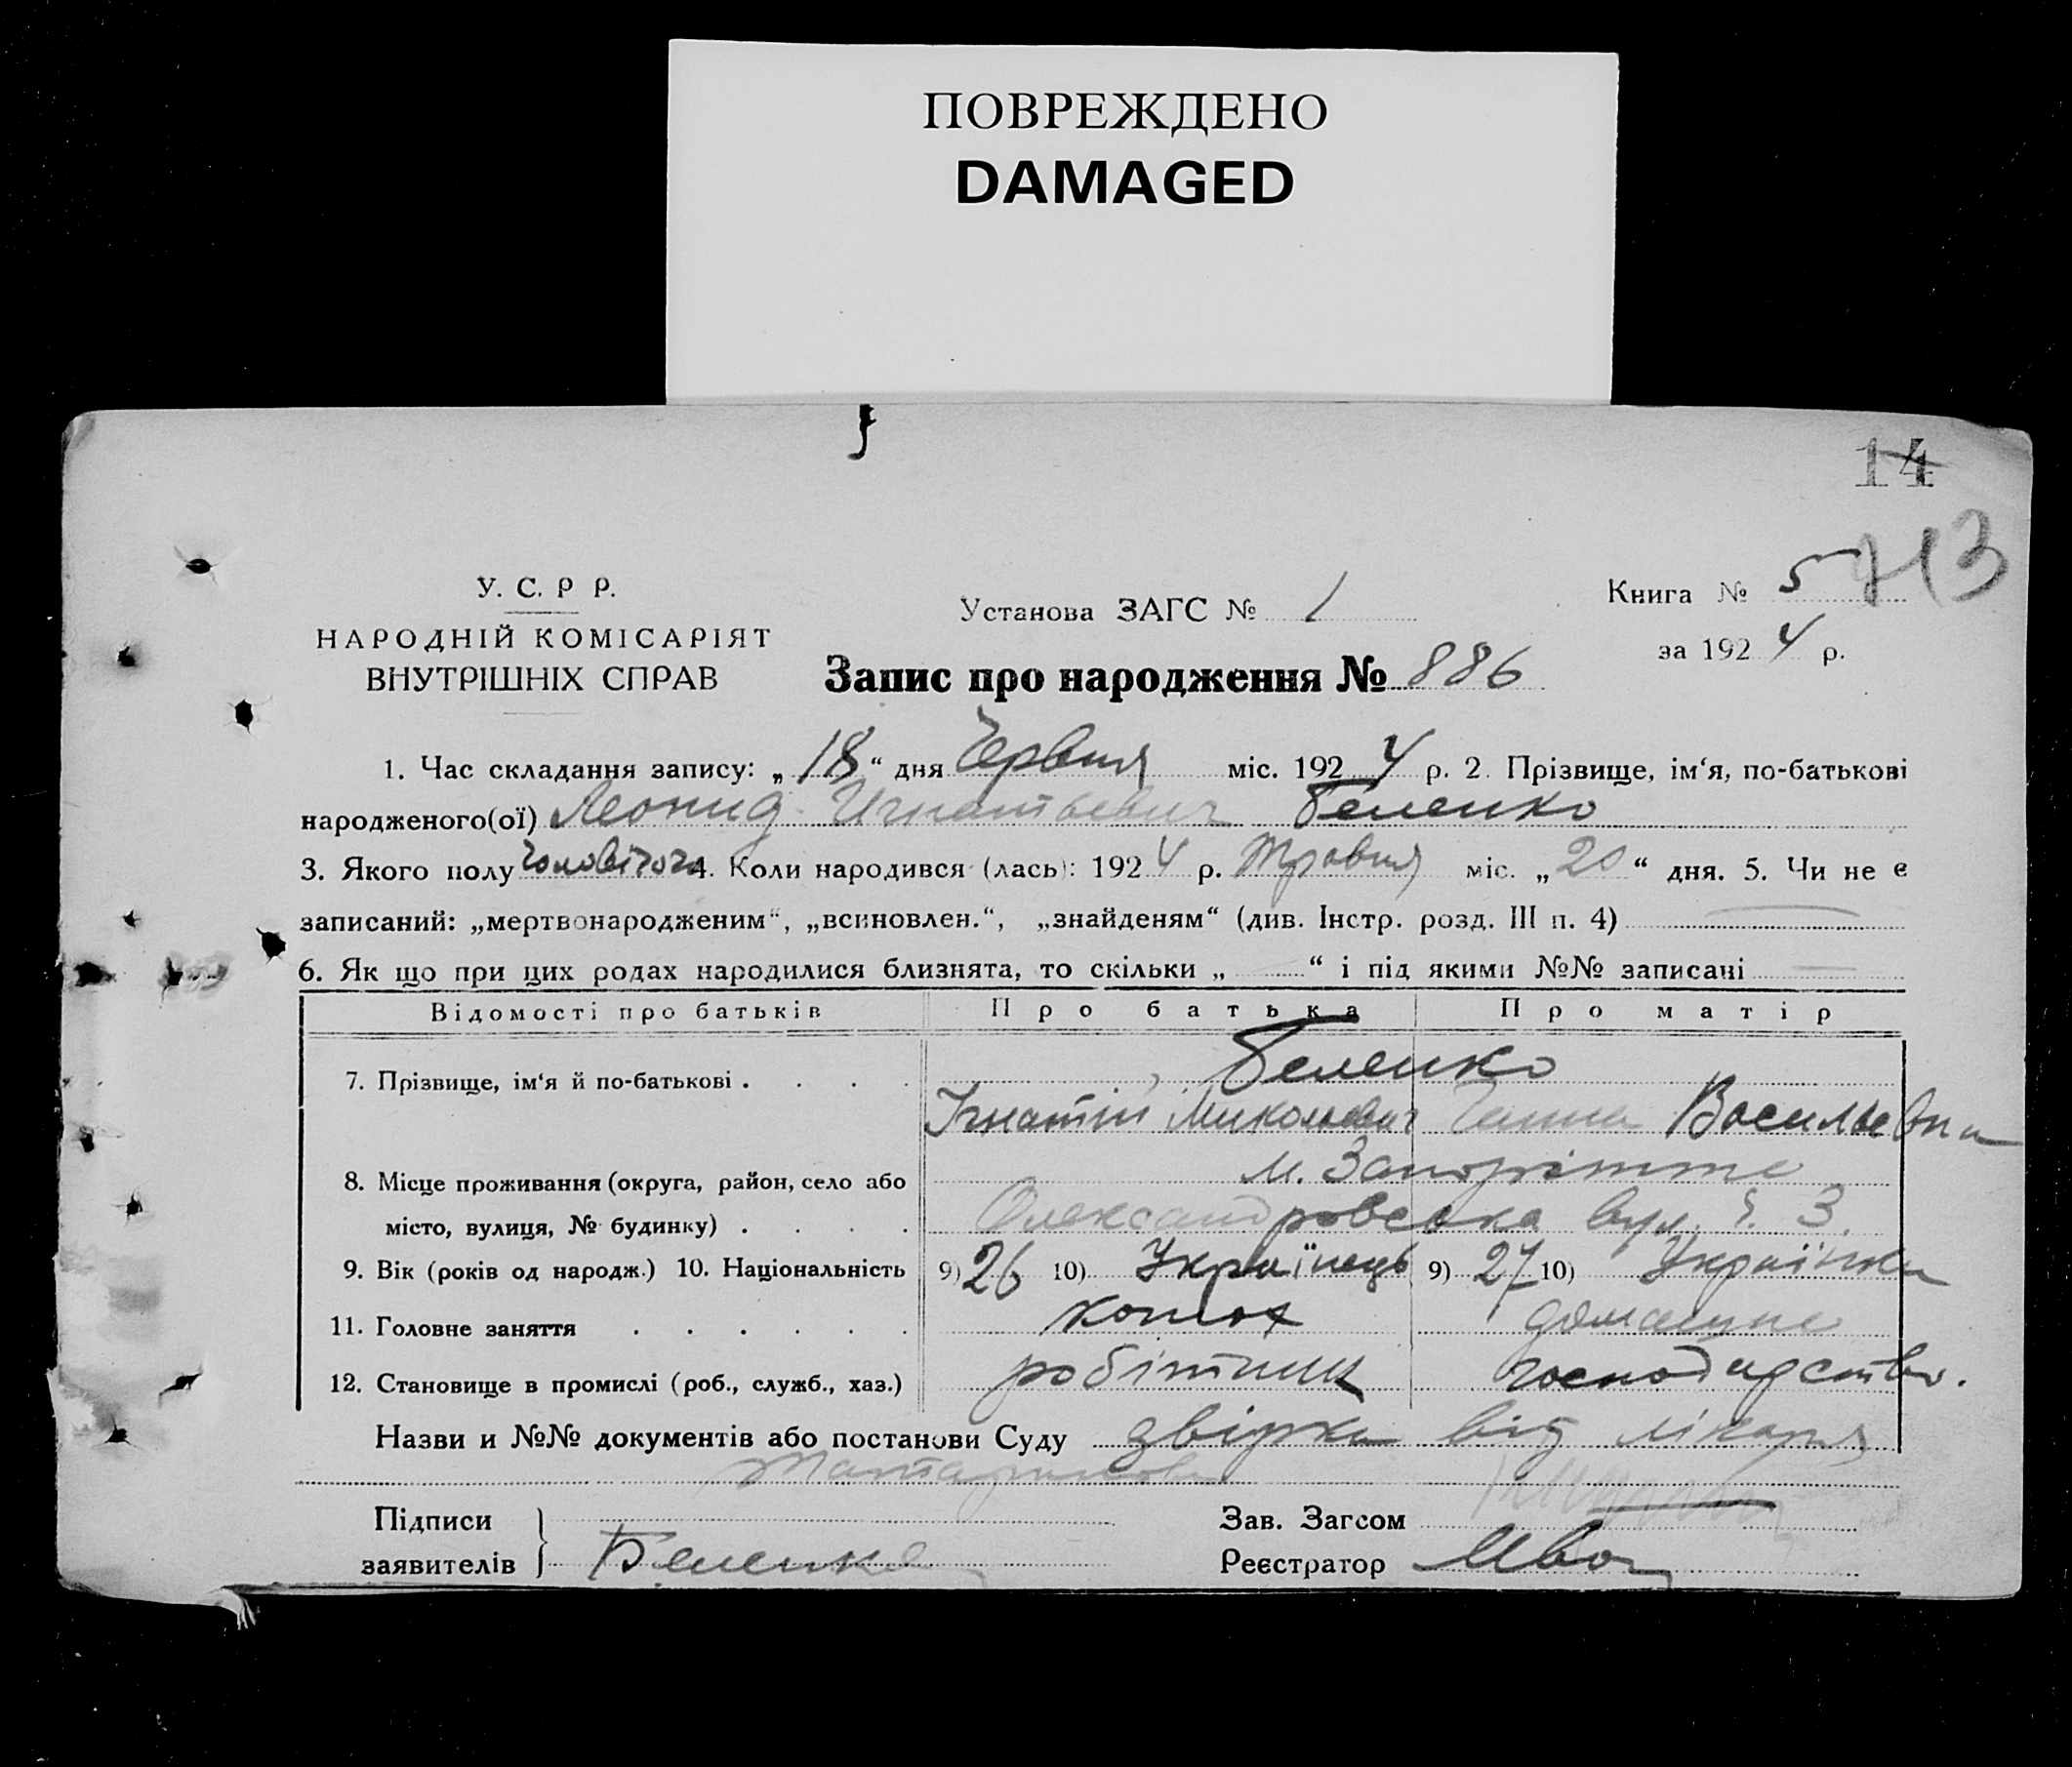 ПОВРЕЖДЕНО
DAMAGED
14
13
У. С. Р Р.
НАРОДНІЙ КОМІСАРІЯТ
ВНУТРІШНІХ СПРАВ
Установа ЗАГС № 1
Книга № 5
за 1924 р.
Запис про народження № 886
1. Час складання запису: „18“ дня Червня міс. 1924 р. 2. Прізвище, ім‘я, по-батькові
народженого(ої) Леонид Игнатьевич Беленко
3. Якого полу чоловічого 4. Коли народився (лась): 1924 р. Травня міс. „20“ дня. 5. Чи не є
записаний: „мертвонародженим“, „всиновлен.“, „знайденям“ (див. Інстр. розд. III п. 4)
6. Як що при цих родах народилися близнята, то скільки „ “ і під якими №№ записані
Відомості про батьків Про батька Про матір
7. Прізвище, ім‘я й по-батькові . . . . Беленко
Ігнатій Миколаевич Ганна Васильевна
8. Місце проживання (округа, район, село або м. Запоріжже
місто, вулиця, № будинку) . . . . Олександровська вул. ч. 3.
9. Вік (років од народж.) 10. Національність 9) 26 10) Українець 9) 27 10) Українка
11. Головне заняття . . . . . . домашнє
12. Становище в промислі (роб., служб., хаз.) робітник господарство.
Назви и №№ документів або постанови Суду звірка від лікаря
Підписи
заявителів } Беленко
Зав. Загсом
Реєстратор